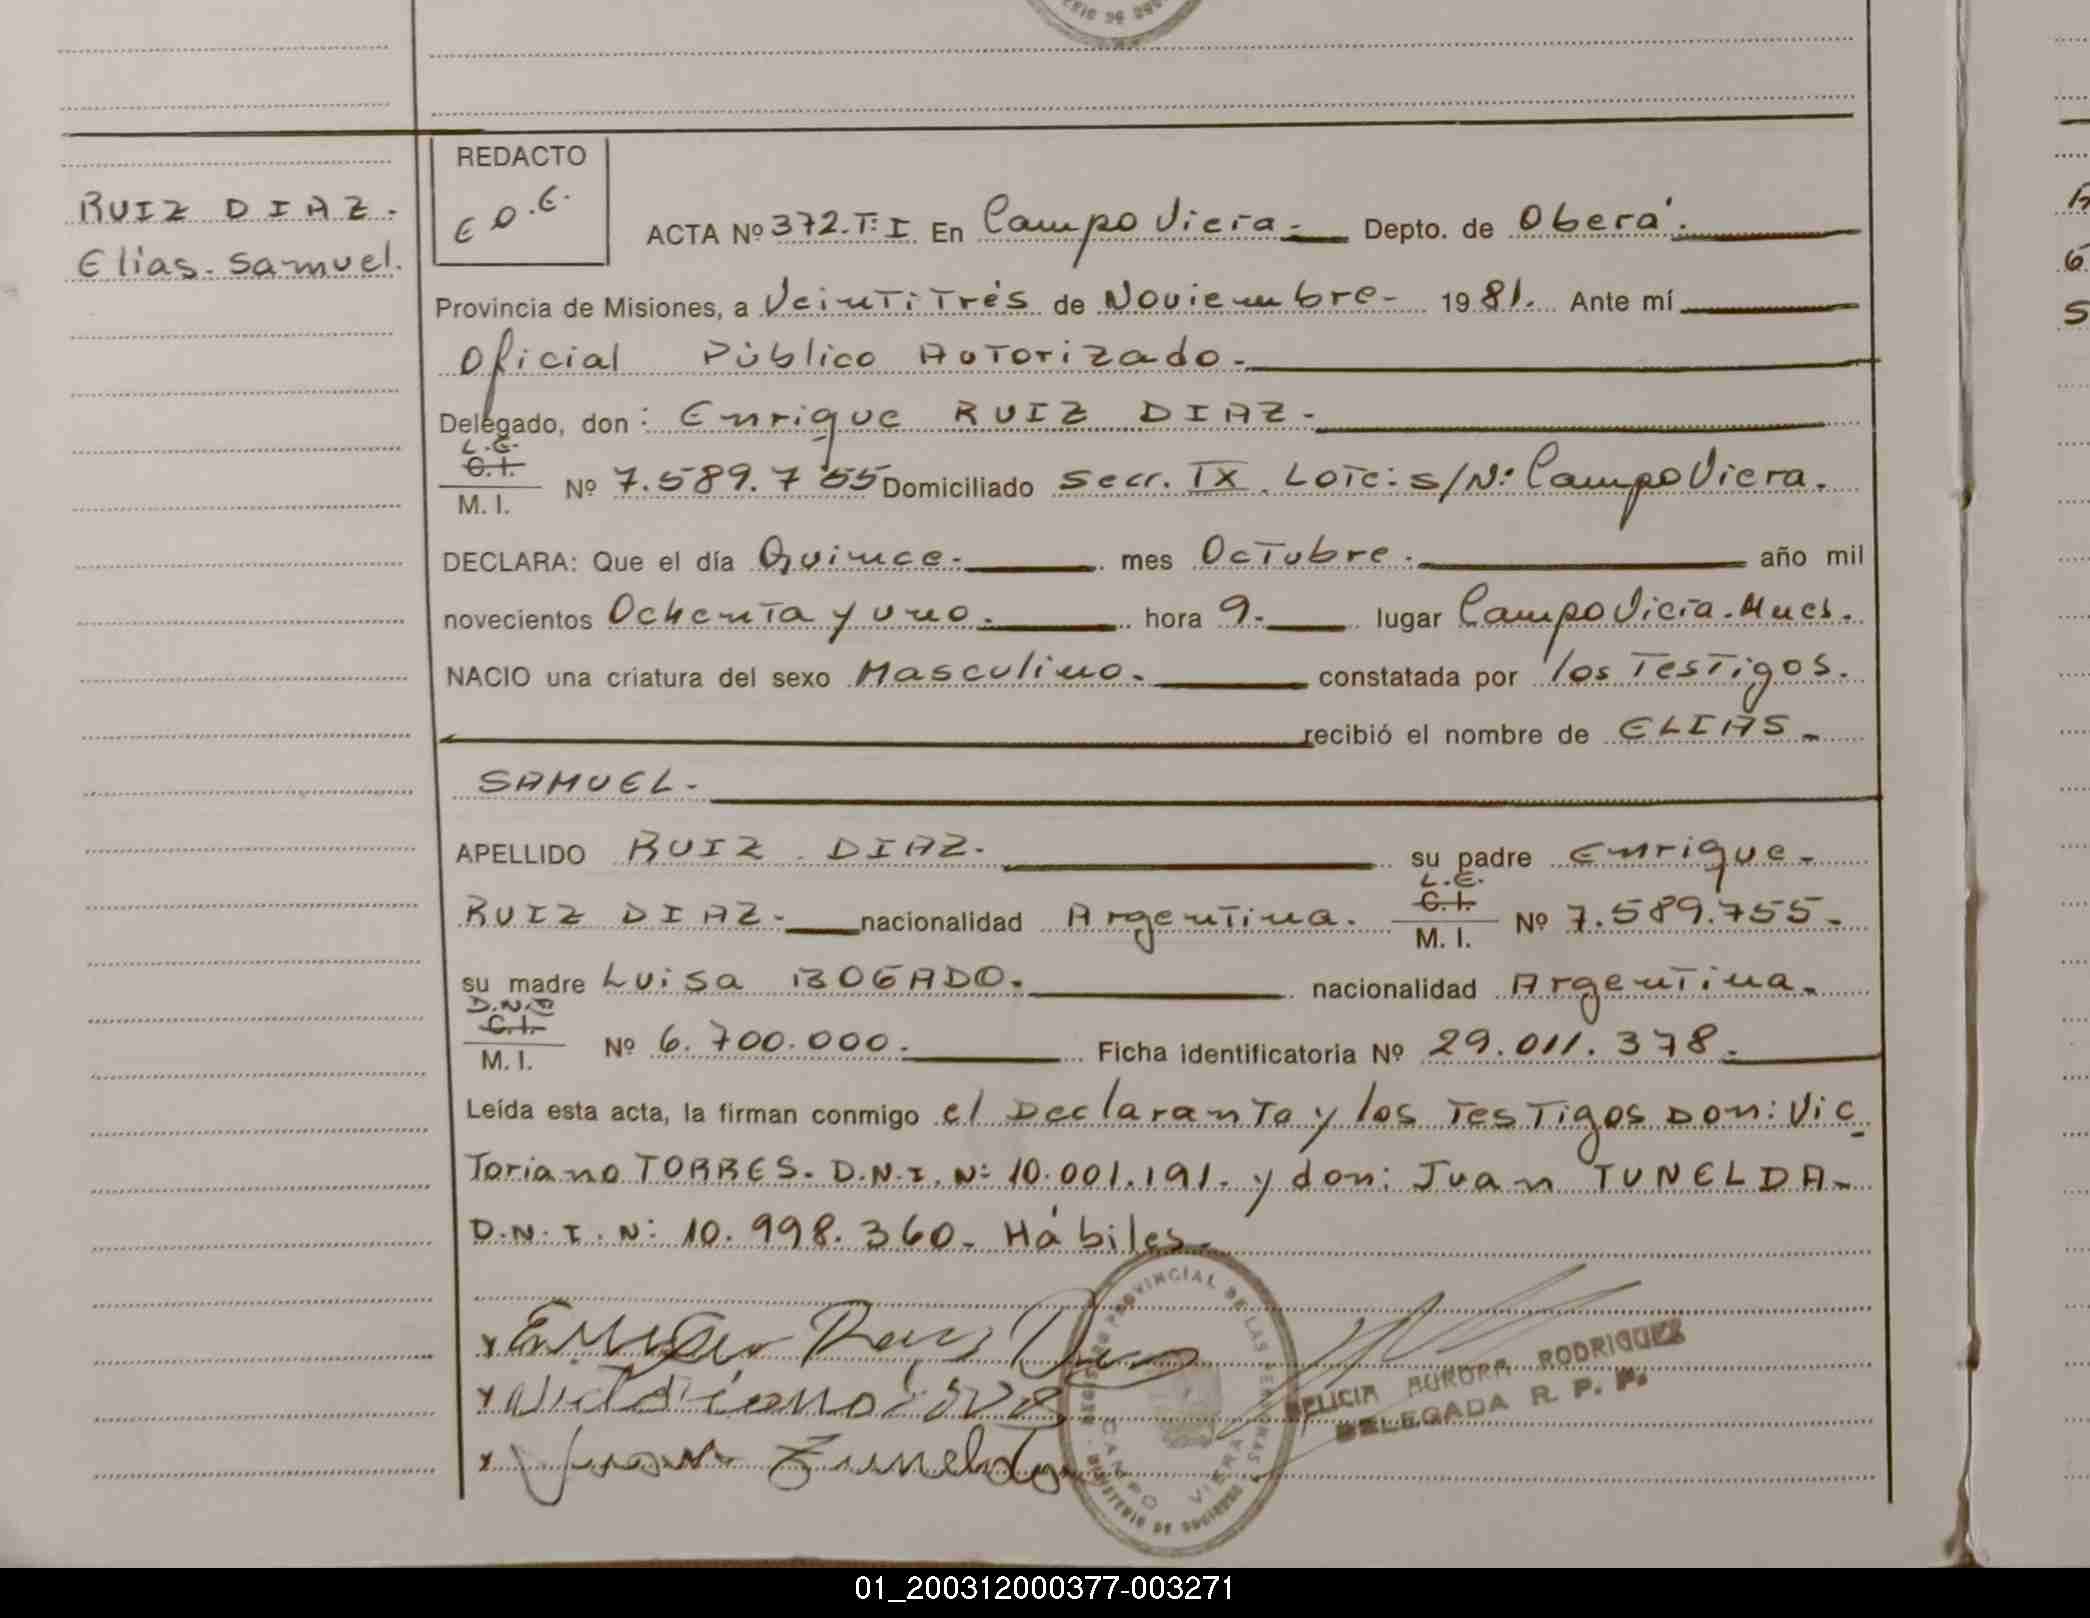 RUIZ DIAZ.
Elias. Samuel.
REDACTO
E O. E.
ACTA Nº 372.T:I En Campo Viera.- Depto. de Oberá.
Provincia de Misiones, a Veintitrés de Noviembre- 1981. Ante mí
Oficial Público Autorizado.-
Delegado, don: Enrique RUIZ DIAZ-
L.E.
C.I.
M. I. Nº 7.589.755 Domiciliado Secc. IX Lote: s/Nº Campo Viera.
DECLARA: Que el día Quince.- mes Octubre.- año mil
novecientos Ochenta y uno.- hora 9.- lugar Campo Viera.
NACIO una criatura del sexo Masculino.- constatada por los Testigos.
recibió el nombre de ELIAS-
SAMUEL-
APELLIDO RUIZ DIAZ- su padre Enrique-
RUIZ DIAZ- nacionalidad Argentina. L.E. C.I. M. I. Nº 7.589.755-
su madre Luisa BOGADO. nacionalidad Argentina-
D.N.I
C.I.
M. I. Nº 6.700.000- Ficha identificatoria Nº 29.011.378-
Leída esta acta, la firman conmigo el Declarante y los Testigos Don: Vic
Toriano TORRES. D.N.I. Nº 10.001.191. y don: Juan TUNELDA-
D.N.I. Nº 10.998.360- Hábiles-
Juan Zunelda
REGISTRO PROVINCIAL DE LAS PERSONAS
CAMPO VIERA
MINISTERIO DE GOBIERNO
FELICIA AURORA RODRIGUEZ
DELEGADA R. P. P.
01_200312000377-003271